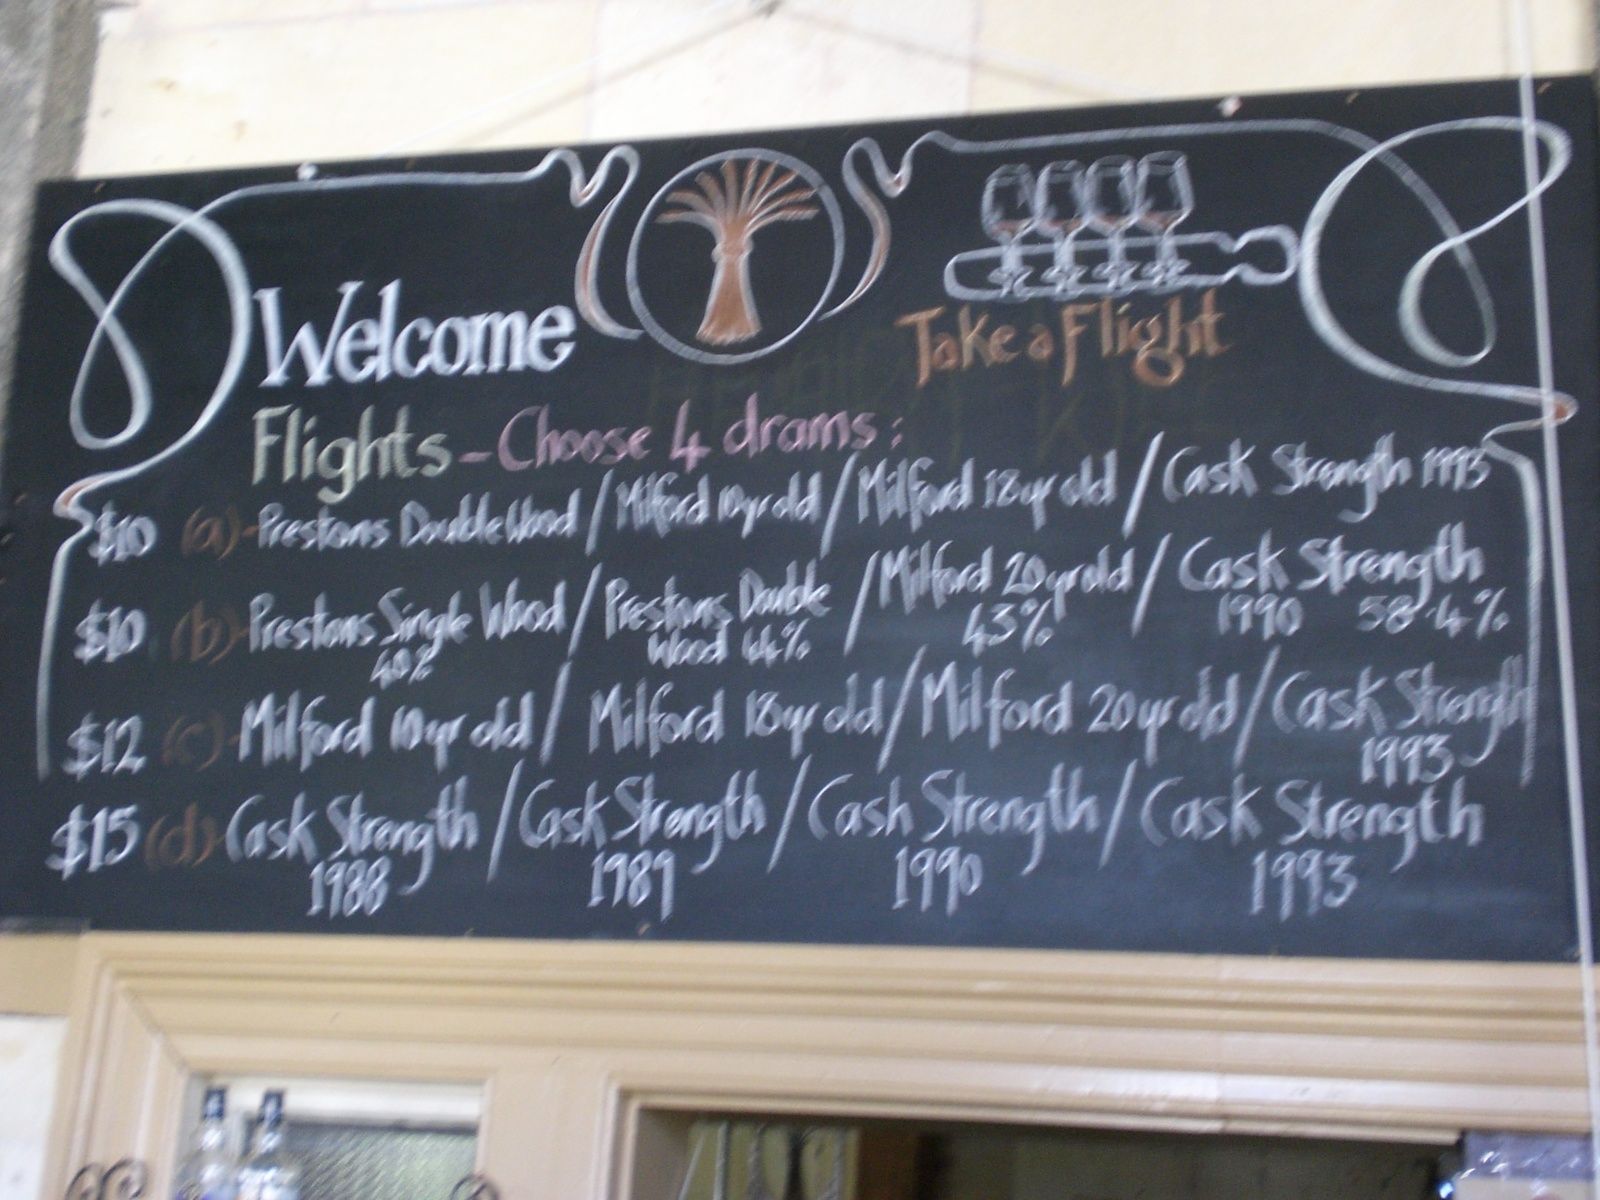 Welcome
Take a Flight
Flights - Choose 4 drams:
$10 (a) - Prestons DoubleWood / Milford 10yr old / Milford 18yr old / Cask Strength 1993
$10 (b) - Prestons Single Wood / Prestons Double / Milford 20yr old / Cask Strength
40% Wood 44% 43% 1990 58.4%
$12 (c) - Milford 10yr old / Milford 18yr old / Milford 20yr old / Cask Strength
1993
$15 (d) - Cask Strength / Cask Strength / Cash Strength / Cask Strength
1988 1989 1990 1993